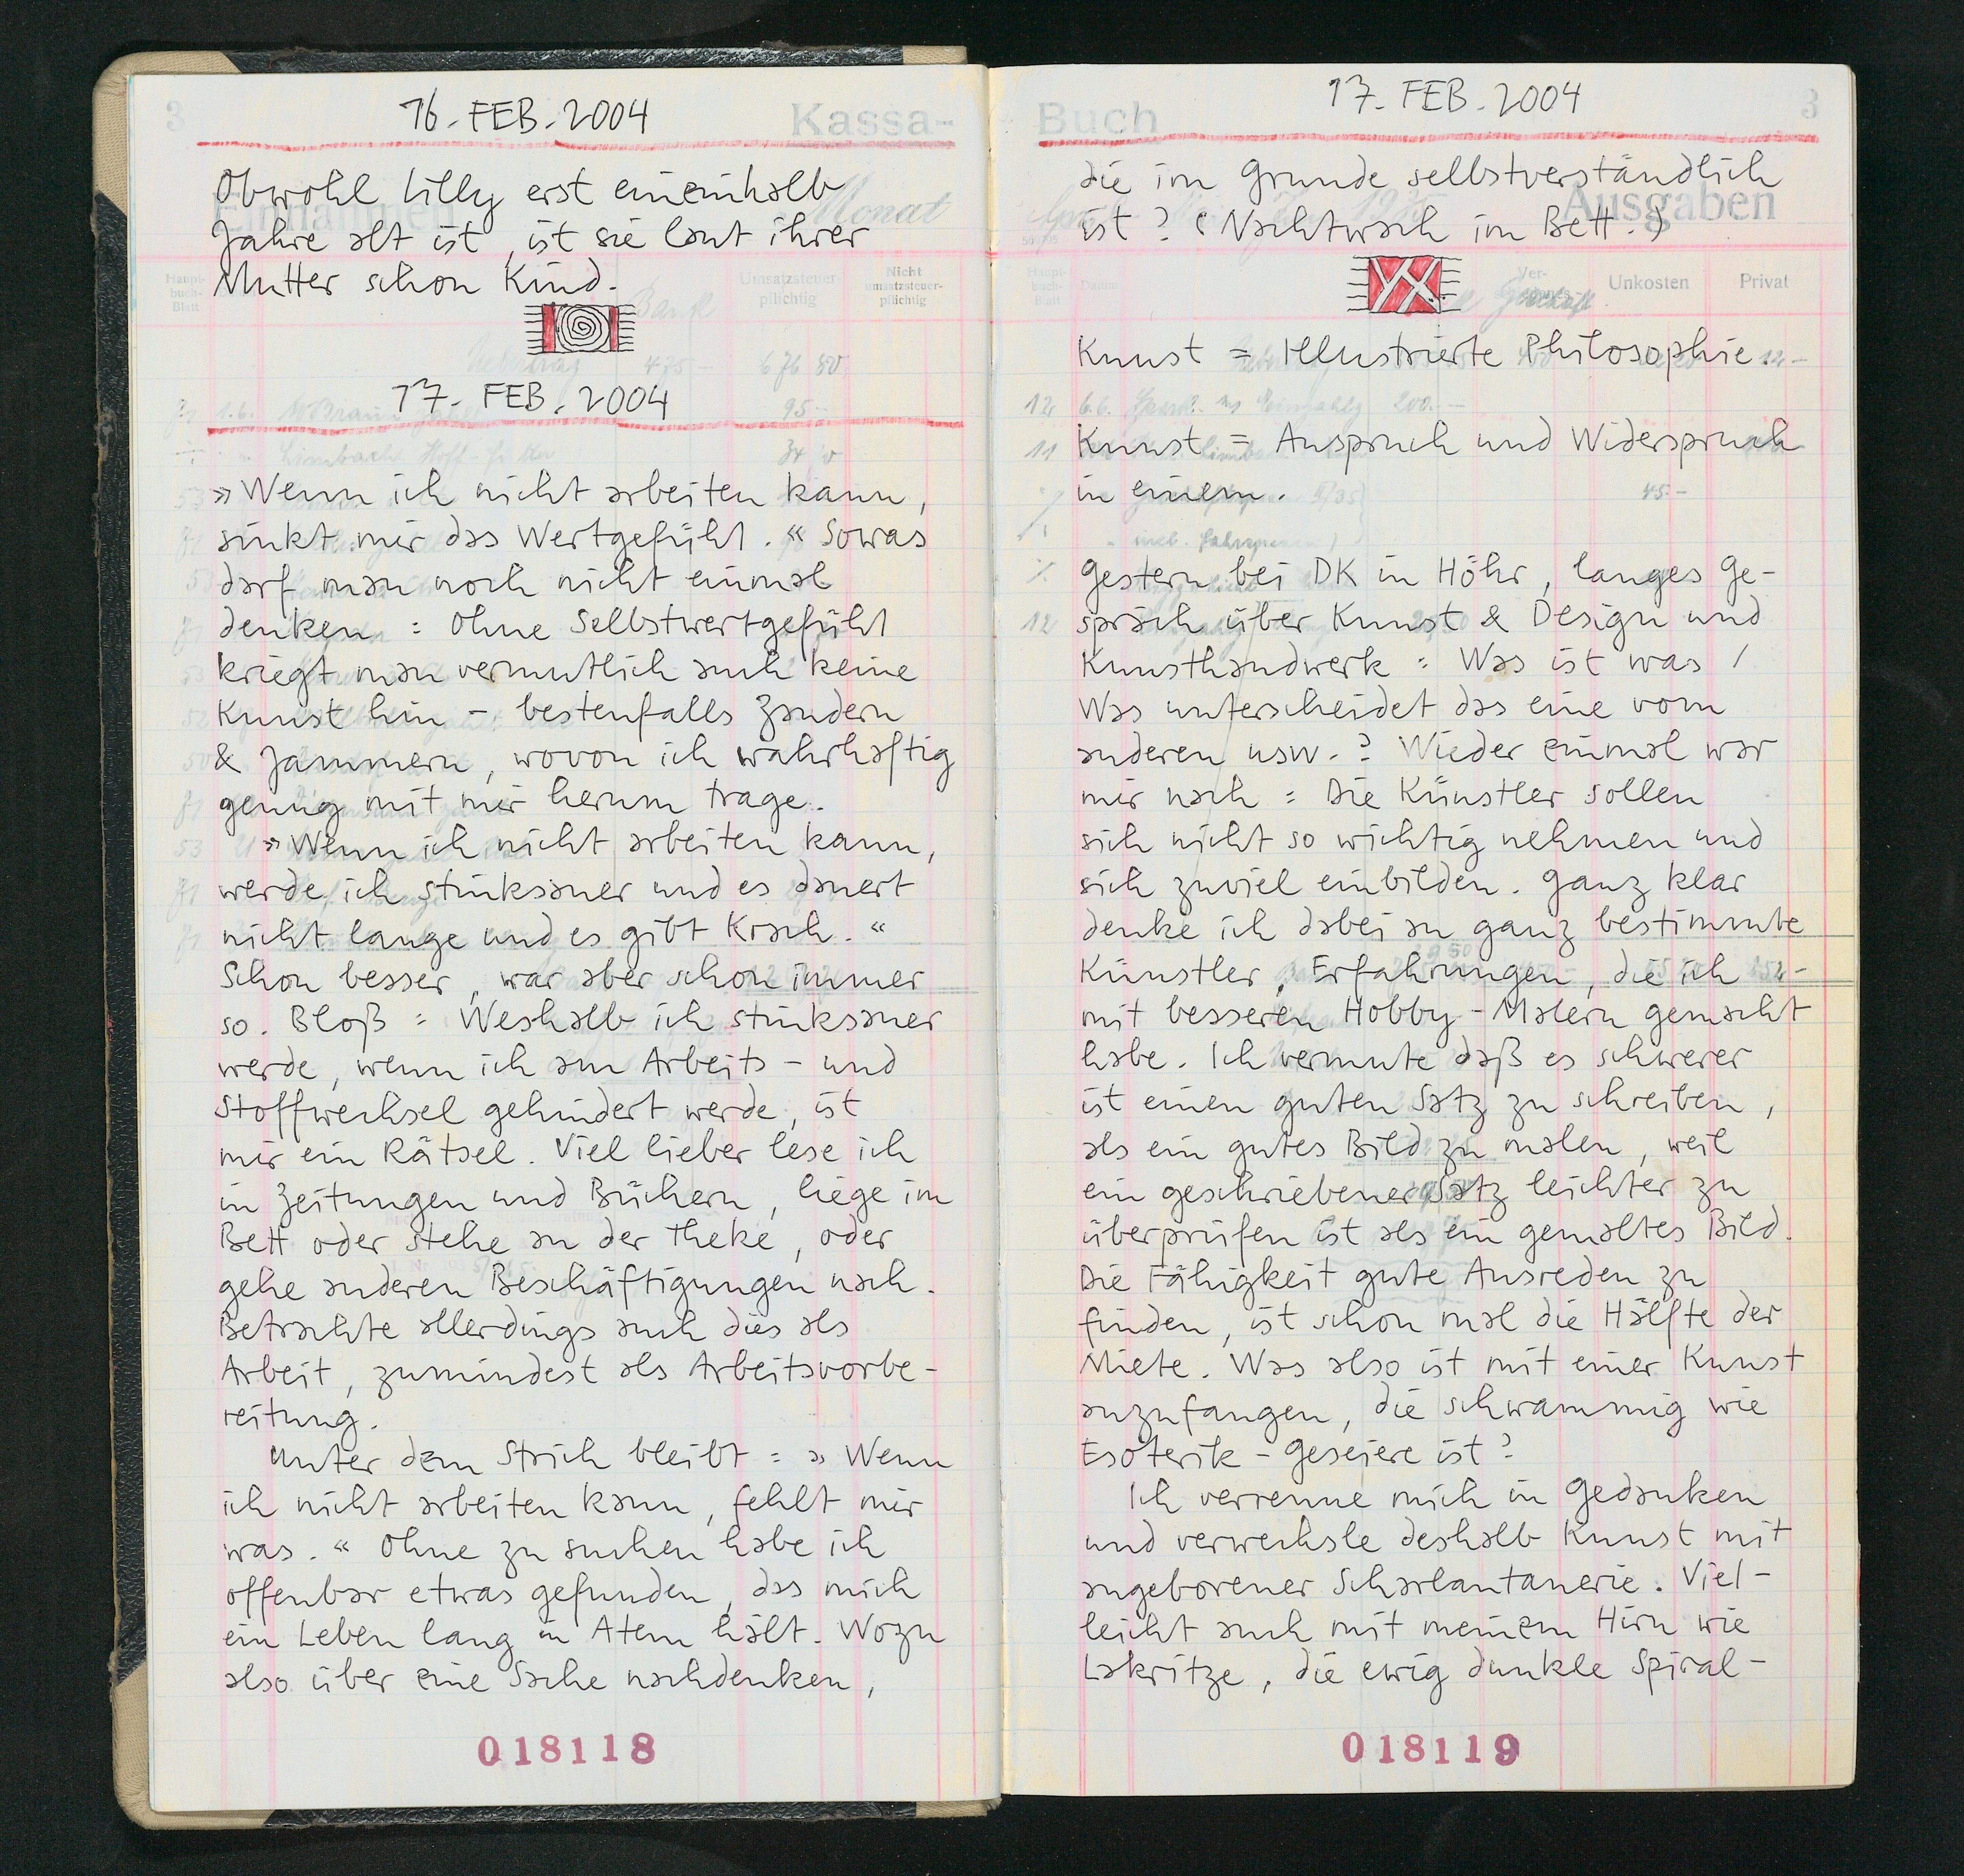 3
16. FEB. 2004
Kassa-
Einnahmen
Monat
Obwohl Lilly erst eineinhalb
Jahre alt ist, ist sie laut ihrer
Mutter schon Kind.
Haupt-
buch-
Blatt
Umsatzsteuer-
pflichtig
Nicht
umsatzsteuer-
pflichtig
17. FEB. 2004
»Wenn ich nicht arbeiten kann,
sinkt mir das Wertgefühl.« Sowas
darf man noch nicht einmal
denken: Ohne Selbstwertgefühl
kriegt man vermutlich auch keine
Kunst hin – bestenfalls Zaudern
& Jammern, wovon ich wahrhaftig
genug mit mir herum trage.
»Wenn ich nicht arbeiten kann,
werde ich stinksauer und es dauert
nicht lange und es gibt Krach.«
Schon besser, war aber schon immer
so. Bloß: Weshalb ich stinksauer
werde, wenn ich am Arbeits- und
Stoffwechsel gehindert werde, ist
mir ein Rätsel. Viel lieber lese ich
in Zeitungen und Büchern, liege im
Bett oder stehe an der Theke, oder
gehe anderen Beschäftigungen nach.
Betrachte allerdings auch dies als
Arbeit, zumindest als Arbeitsvorbe-
reitung.
Unter dem Strich bleibt: »Wenn
ich nicht arbeiten kann, fehlt mir
was.« Ohne zu suchen habe ich
offenbar etwas gefunden, das mich
ein Leben lang in Atem hält. Wozu
also über eine Sache nachdenken,
018118
Buch
17. FEB. 2004
3
Ausgaben
die im Grunde selbstverständlich
ist? (Nachtwach im Bett.)
Haupt-
buch-
Blatt
Datum
Ver-
Unkosten
Privat
Kunst = Illustrierte Philosophie.
Kunst = Anspruch und Widerspruch
in einem.
Gestern bei DK in Höhr, langes Ge-
spräch über Kunst & Design und
Kunsthandwerk: Was ist was /
Was unterscheidet das eine vom
anderen usw.? Wieder einmal war
mir nach: Die Künstler sollen
sich nicht so wichtig nehmen und
sich zuviel einbilden. Ganz klar
denke ich dabei an ganz bestimmte
Künstler, Erfahrungen, die ich
mit besseren Hobby-Malern gemacht
habe. Ich vermute daß es schwerer
ist einen guten Satz zu schreiben,
als ein gutes Bild zu malen, weil
ein geschriebener Satz leichter zu
überprüfen ist als ein gemaltes Bild.
Die Fähigkeit gute Ausreden zu
finden, ist schon mal die Hälfte der
Miete. Was also ist mit einer Kunst
anzufangen, die schwammig wie
Esoterik-Geseiere ist?
Ich verrenne mich in Gedanken
und verwechsle deshalb Kunst mit
angeborener Scharlantanerie. Viel-
leicht auch mit meinem Hirn wie
Lakritze, die ewig dunkle Spiral-
018119